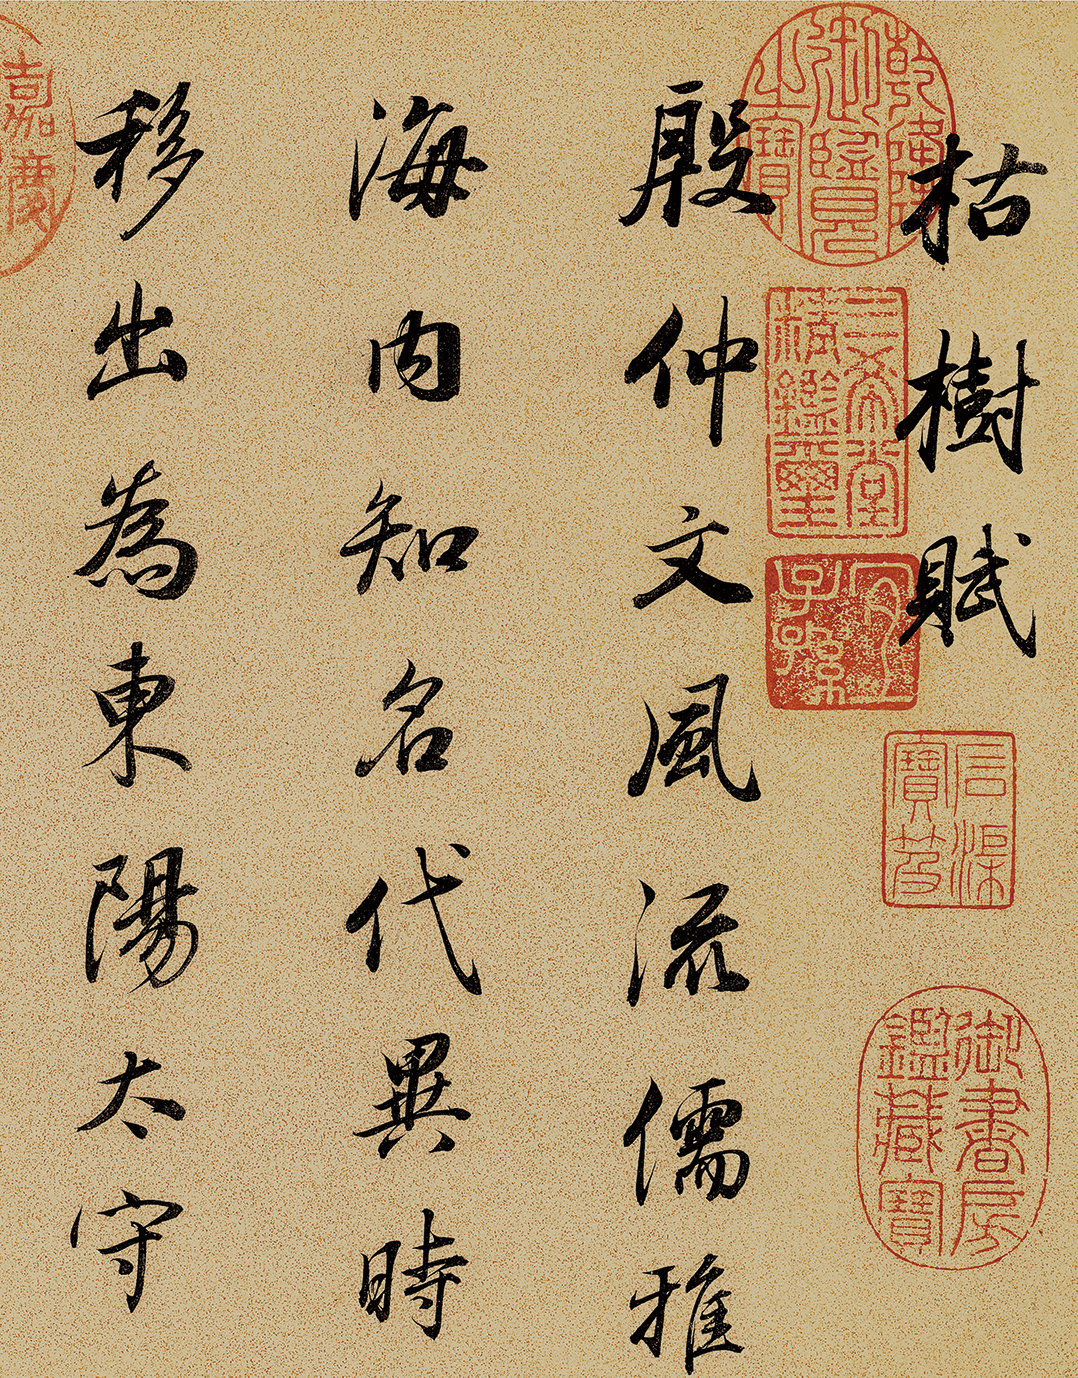 枯樹賦
殷仲文風流儒雅
海内知名代異時
移出為東陽太守
乾隆御覽之寶
三希堂精鑑璽
宜子孫
石渠寶笈
御書房鑑藏寶
嘉慶